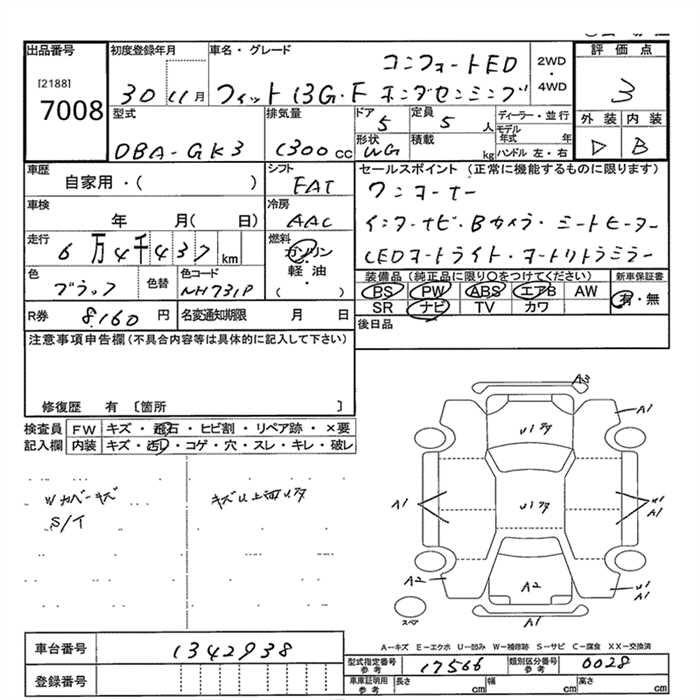 出品番号
[2188]
7008
初度登録年月
30 11月
車名・グレード
コンフォートED
フィット 13G・F ホンダセンシング
2WD
・
4WD
評価点
3
外装 内装
D B
型式
DBA-GK3
排気量
1300cc
ドア
5
定員
5 人
形状
WG
積載
kg
ディーラー・並行
モデル年式 年
ハンドル 左・右
車歴
自家用・( )
シフト
FAT
車検
年 月( 日)
冷房
AAC
走行
6万4千437km
燃料
ガソリン
・
軽油
( ・ )
色
ブラック
色替
色コード
NH731P
R券 8,160 円
名変通知期限 月 日
セールスポイント (正常に機能するものに限ります)
ワンオーナー
インターナビ・Bカメラ・シートヒーター
LEDオートライト・オートリトラミラー
装備品(純正品に限り○をつけてください)
新車保証書
BS PW ABS エアB AW
SR ナビ TV カワ
有・無
後日品
注意事項申告欄(不具合内容等は具体的に記入して下さい)
修復歴 有 〔箇所 〕
検査員記入欄
FW キズ・飛石・ヒビ割・リペア跡・×要
内装 キズ・汚・コゲ・穴・スレ・キレ・破レ
Wカバーキズ
S/T
キズU上面U1タ
A3
A1
U1タ
A1
U1タ
U1
A1
A2
A2
U1
A1
A1
スペア
A-キズ E-エクボ U-凹み W-補修跡 S-サビ C-腐食 XX-交換済
車台番号 1342938
登録番号
型式指定番号 参考 17566
類別区分番号 参考 0028
車庫証明用 参考 長さ cm 幅 cm 高さ cm